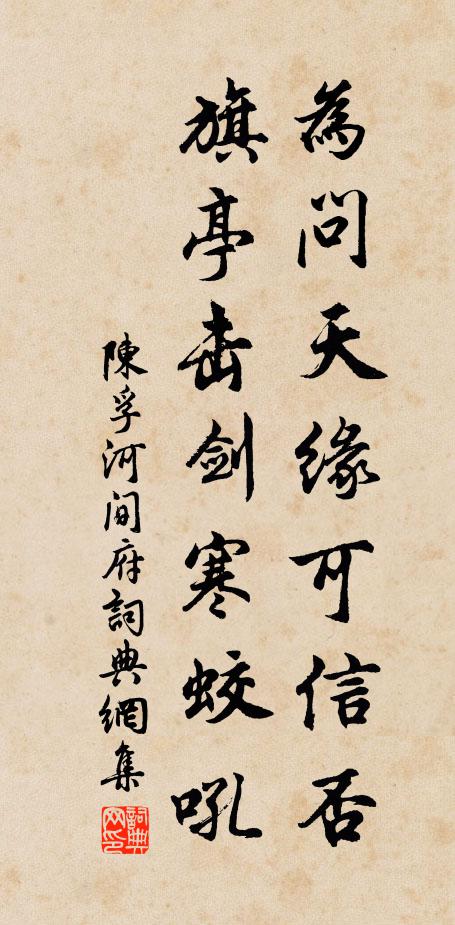 為問天緣可信否
旗亭击剑寒蛟吼
陳孚河间府詞典網集
詞典
网印